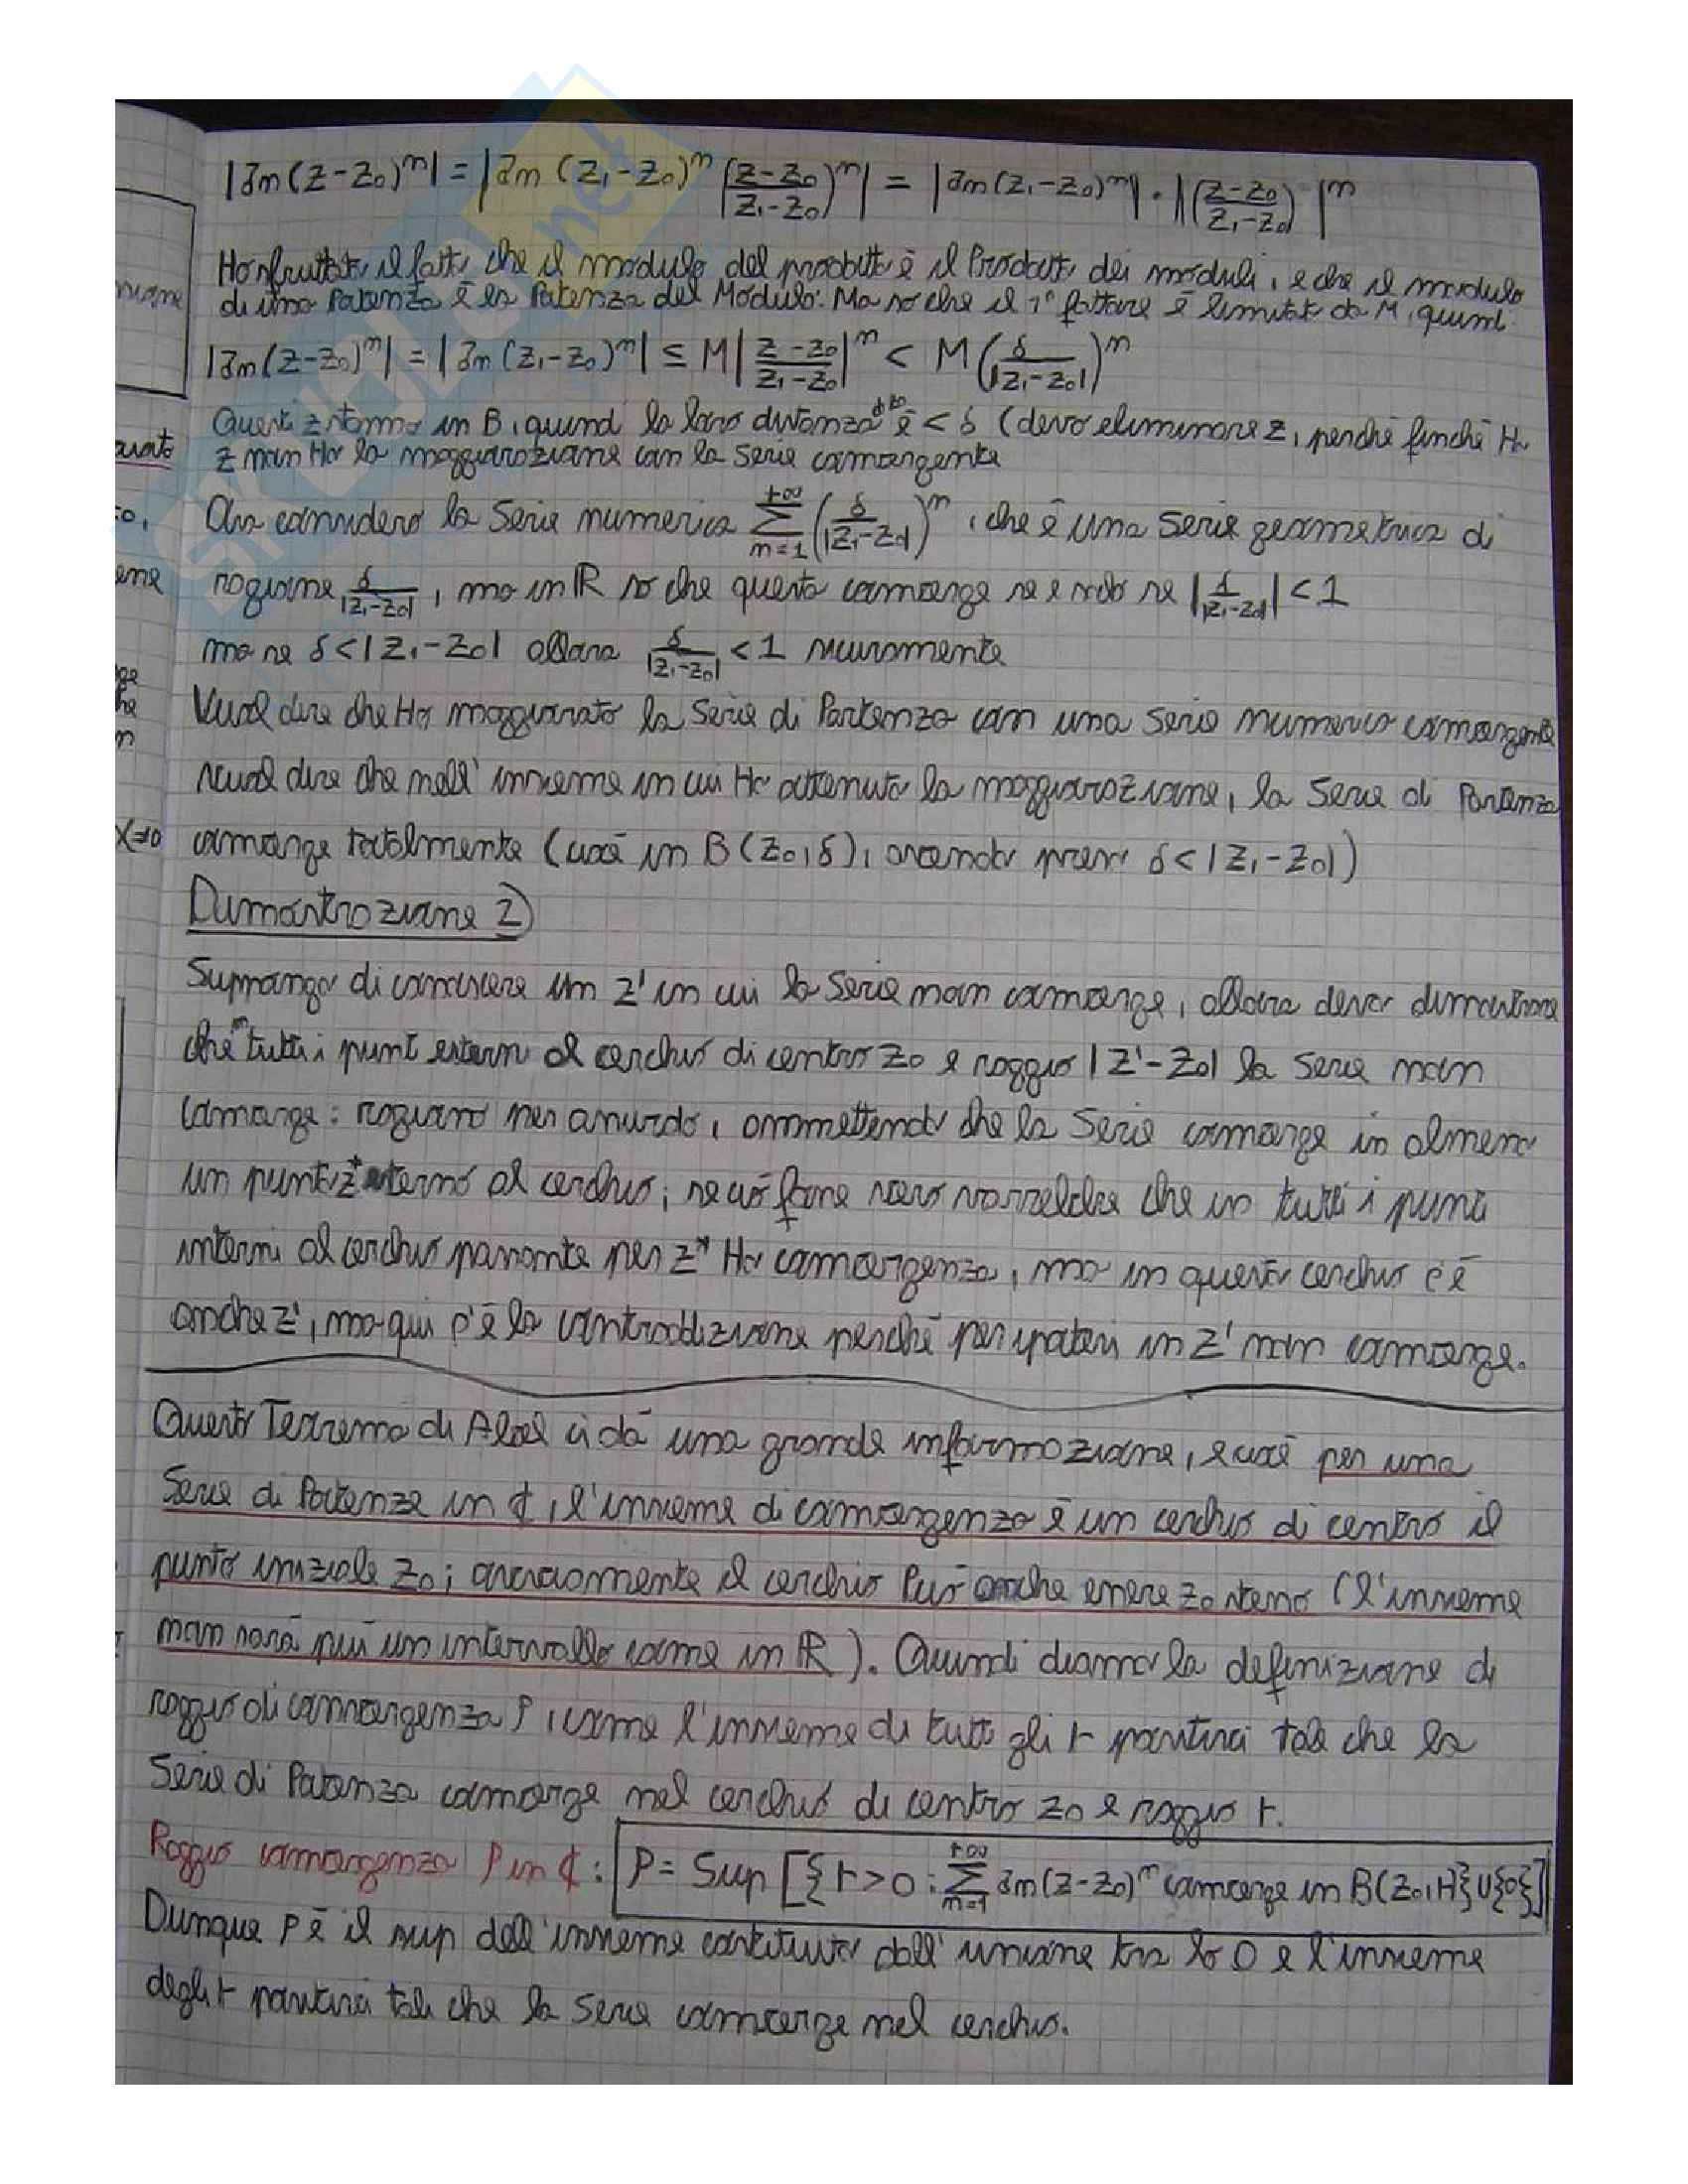 |an(z-z₀)ⁿ| = |an (z₁-z₀)ⁿ ((z-z₀)/(z₁-z₀))ⁿ| = |an(z₁-z₀)ⁿ| · |((z-z₀)/(z₁-z₀))|ⁿ
Ho sfruttato il fatto che il modulo del prodotto è il Prodotto dei moduli, e che il modulo
di una Potenza è la Potenza del Modulo. Ma so che il 1° fattore è limitato da M, quindi
|an(z-z₀)ⁿ| = |an(z₁-z₀)ⁿ| ≤ M|(z-z₀)/(z₁-z₀)|ⁿ < M(δ/|z₁-z₀|)ⁿ
Questi z stanno in B, quindi la loro distanza da z₀ è < δ (devo eliminare z, perché finché Ho
z non Ho la maggiorazione con la serie convergente
Ora considero la Serie numerica ∑ⁿ⁼¹⁺∞ (δ/|z₁-z₀|)ⁿ, che è una serie geometrica di
ragione δ/|z₁-z₀|, ma in ℝ so che questa converge se e solo se |δ/|z₁-z₀|| < 1
ma se δ<|z₁-z₀| allora δ/|z₁-z₀| < 1 sicuramente
Vuol dire che Ho maggiorato la Serie di Partenza con una serie numerica convergente
vuol dire che nell'insieme in cui Ho ottenuto la maggiorazione, la Serie di Partenza
converge totalmente (cioè in B(z₀,δ), avendo preso δ<|z₁-z₀|)
Dimostrazione 2)
Suppongo di conoscere un z' in cui la Serie non converge, allora devo dimostrare
che in tutti i punti esterni al cerchio di centro z₀ e raggio |z'-z₀| la serie non
converge: ragiono per assurdo, ammettendo che la Serie converge in almeno
un punto z* esterno al cerchio; se ciò fosse vero vorrebbe che in tutti i punti
interni al cerchio passante per z* Ho convergenza, ma in questo cerchio c'è
anche z', ma qui c'è la contraddizione perché per ipotesi in z' non converge.
Questo Teorema di Abel ci dà una grande informazione, e cioè per una
Serie di Potenze in ℂ, l'insieme di convergenza è un cerchio di centro il
punto iniziale z₀; ovviamente il cerchio Può anche essere z₀ stesso (l'insieme
non sarà più un intervallo come in ℝ). Quindi diamo la definizione di
raggio di convergenza ρ, come l'insieme di tutti gli r positivi tale che la
Serie di Potenza converge nel cerchio di centro z₀ e raggio r.
Raggio convergenza ρ in ℂ: ρ = Sup [{r>0 : ∑ⁿ⁼¹⁺∞ an(z-z₀)ⁿ converge in B(z₀,r)}∪{0}]
Dunque ρ è il sup dell'insieme costituito dall'unione tra lo 0 e l'insieme
degli r positivi tale che la Serie converge nel cerchio.
SKUOLA.net
x=0